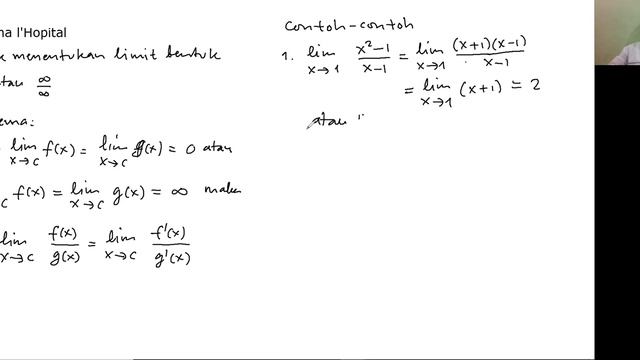 na l'Hopital
k menentukan limit bentuk
atau ∞/∞
ema:
lim x→c f(x) = lim x→c g(x) = 0 atau
c f(x) = lim x→c g(x) = ∞ maka
lim x→c f(x)/g(x) = lim x→c f'(x)/g'(x)
Contoh-contoh
1. lim x→1 x²-1/x-1 = lim x→1 (x+1)(x-1)/x-1
= lim x→1 (x+1) = 2
atau